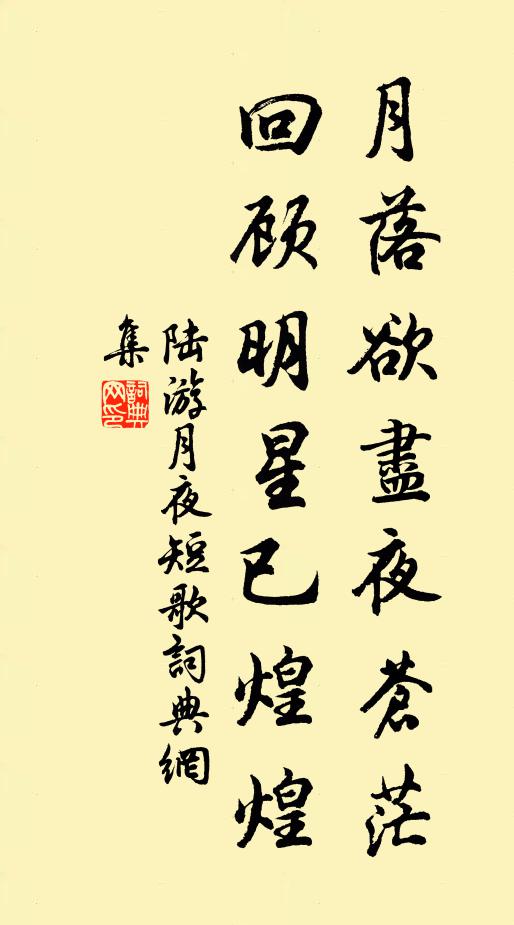 月落欲盡夜蒼茫
回顾明星已煌煌
陆游月夜短歌詞典網
集
詞典網印